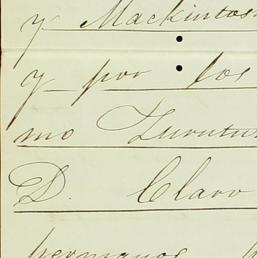 y Mackintos
y por los
mo
D. Claro
hermanos